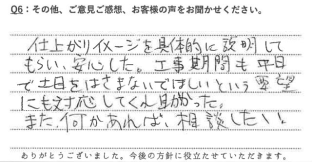 Q6：その他、ご意見ご感想、お客様の声をお聞かせください。
仕上がりイメージを具体的に説明して
もらい、安心した。工事期間も平日
で土日をはさまないでほしいという要望
にも対応してくれ助かった。
また、何かあれば、相談したい。
ありがとうございました。今後の方針に役立たせていただきます。